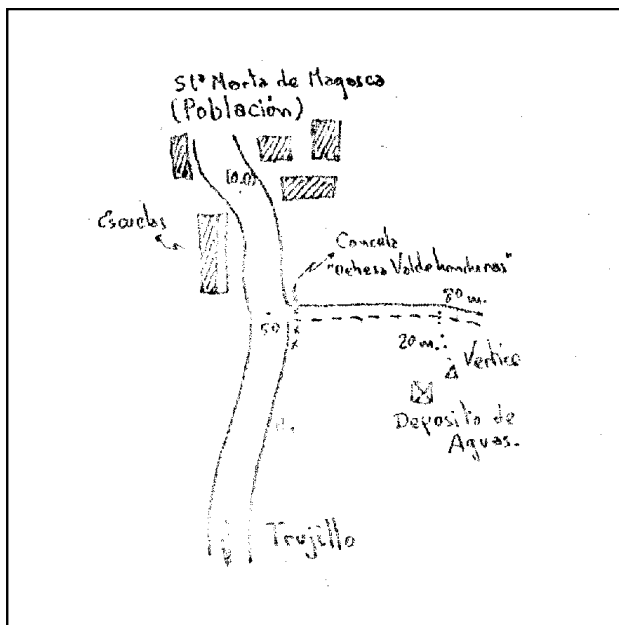 Stª Marta de Magasca
(Población)
(0.0)
Escuelas
Cancela
"Dehesa Valdehonduras"
80 m.
50
20 m.
Vertice
Deposito de
Aguas.
Trujillo